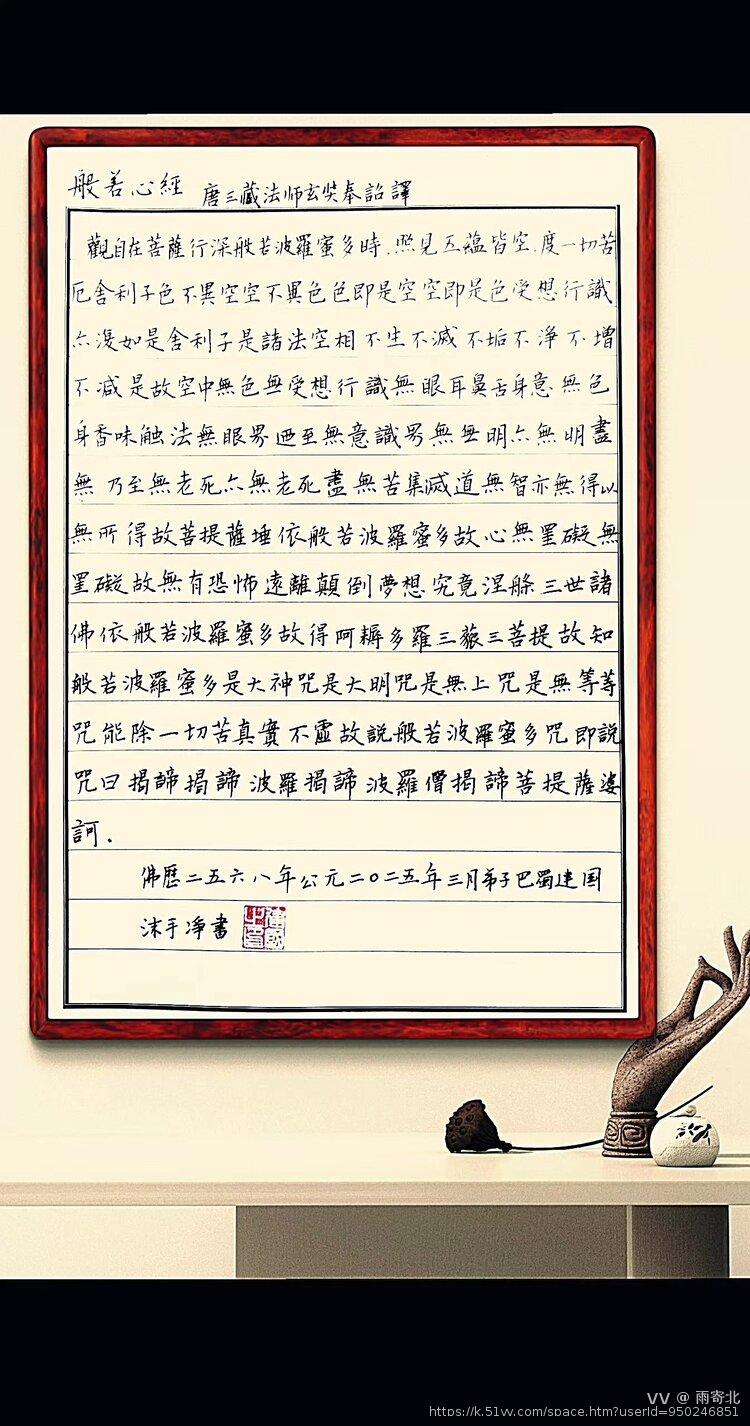 般若心經 唐三藏法师玄奘奉詔譯
觀自在菩薩行深般若波羅蜜多時.照見五蘊皆空.度一切苦
厄舍利子色不異空空不異色色即是空空即是色受想行識
亦復如是舍利子是諸法空相不生不滅不垢不淨不增
不減是故空中無色無受想行識無眼耳鼻舌身意無色
身香味触法無眼界迺至無意識界無無明亦無明盡
無乃至無老死亦無老死盡無苦集滅道無智亦無得以
無所得故菩提薩埵依般若波羅蜜多故心無罣礙無
罣礙故無有恐怖遠離顛倒夢想究竟涅槃三世諸
佛依般若波羅蜜多故得阿耨多羅三藐三菩提故知
般若波羅蜜多是大神咒是大明咒是無上咒是無等等
咒能除一切苦真實不虛故說般若波羅蜜多咒即說
咒曰揭諦揭諦波羅揭諦波羅僧揭諦菩提薩婆
訶.
佛歷二五六八年公元二〇二五年三月弟子巴蜀建国
沫手净書
VV @ 雨寄北
https://k.51vv.com/space.htm?userId=950246851